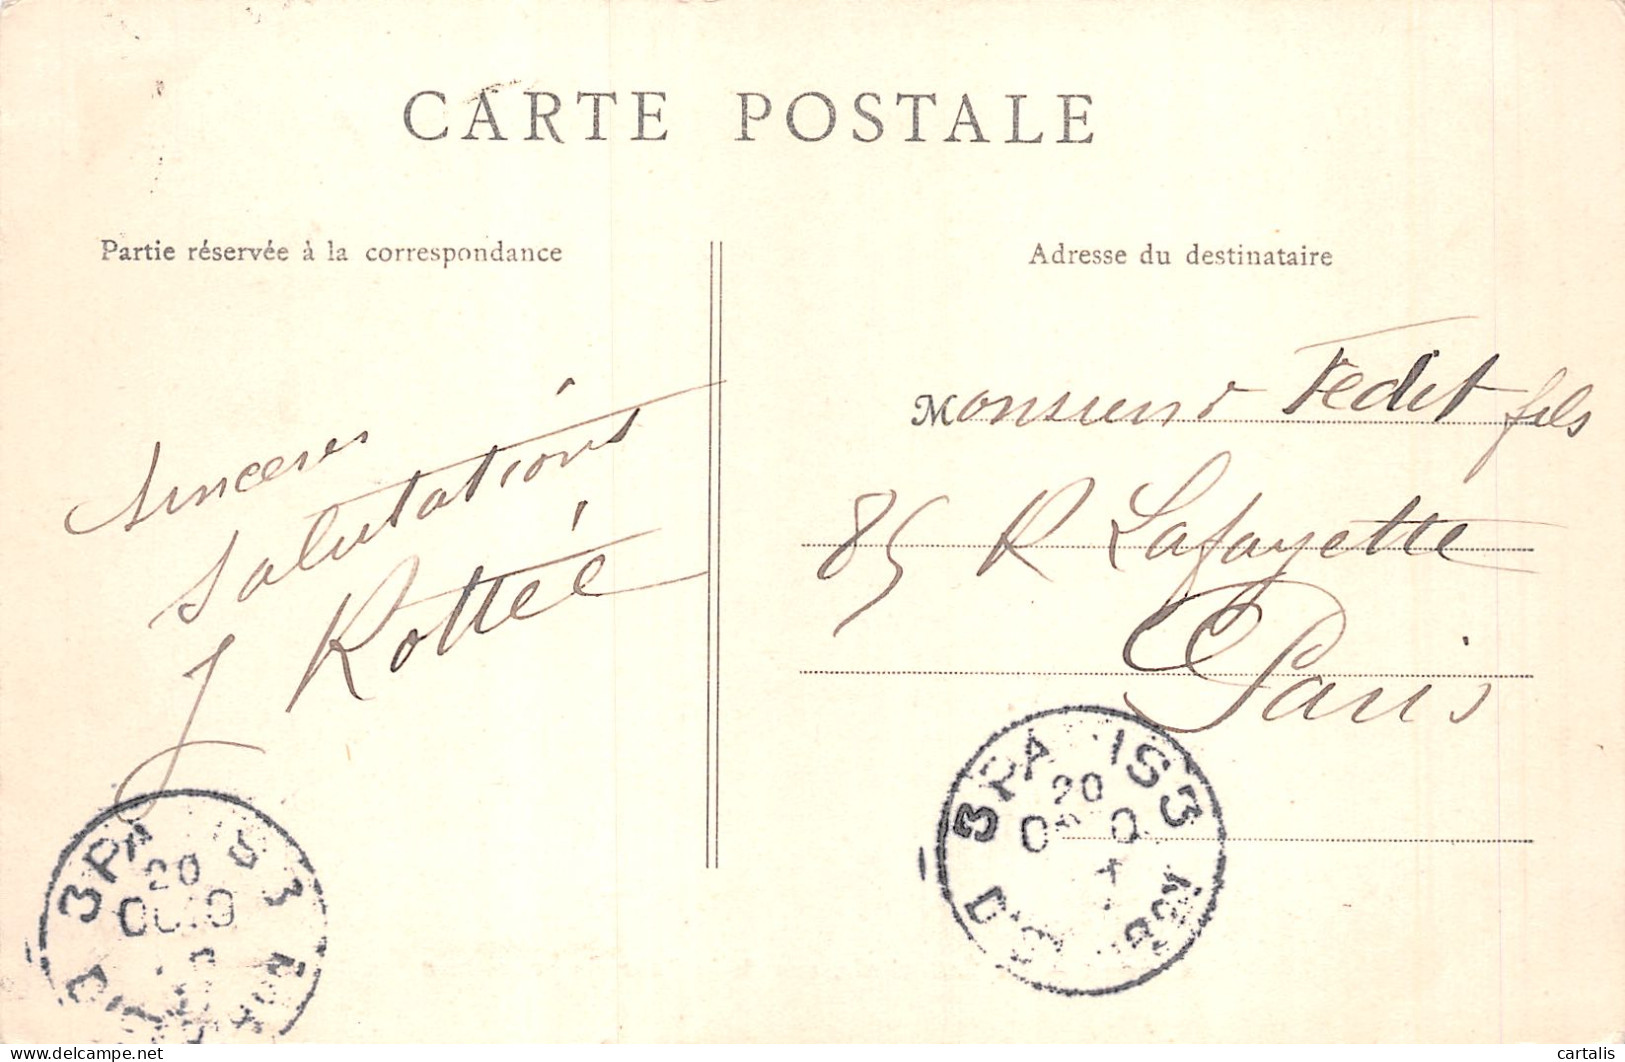 CARTE POSTALE
Partie réservée à la correspondance
Sincères
salutations
J Rottée
Adresse du destinataire
Monsieur Fedit fils
85 R Lafayette
Paris
3 PARIS 3
20
3 PARIS 3
20
delcampe.net
cartalis